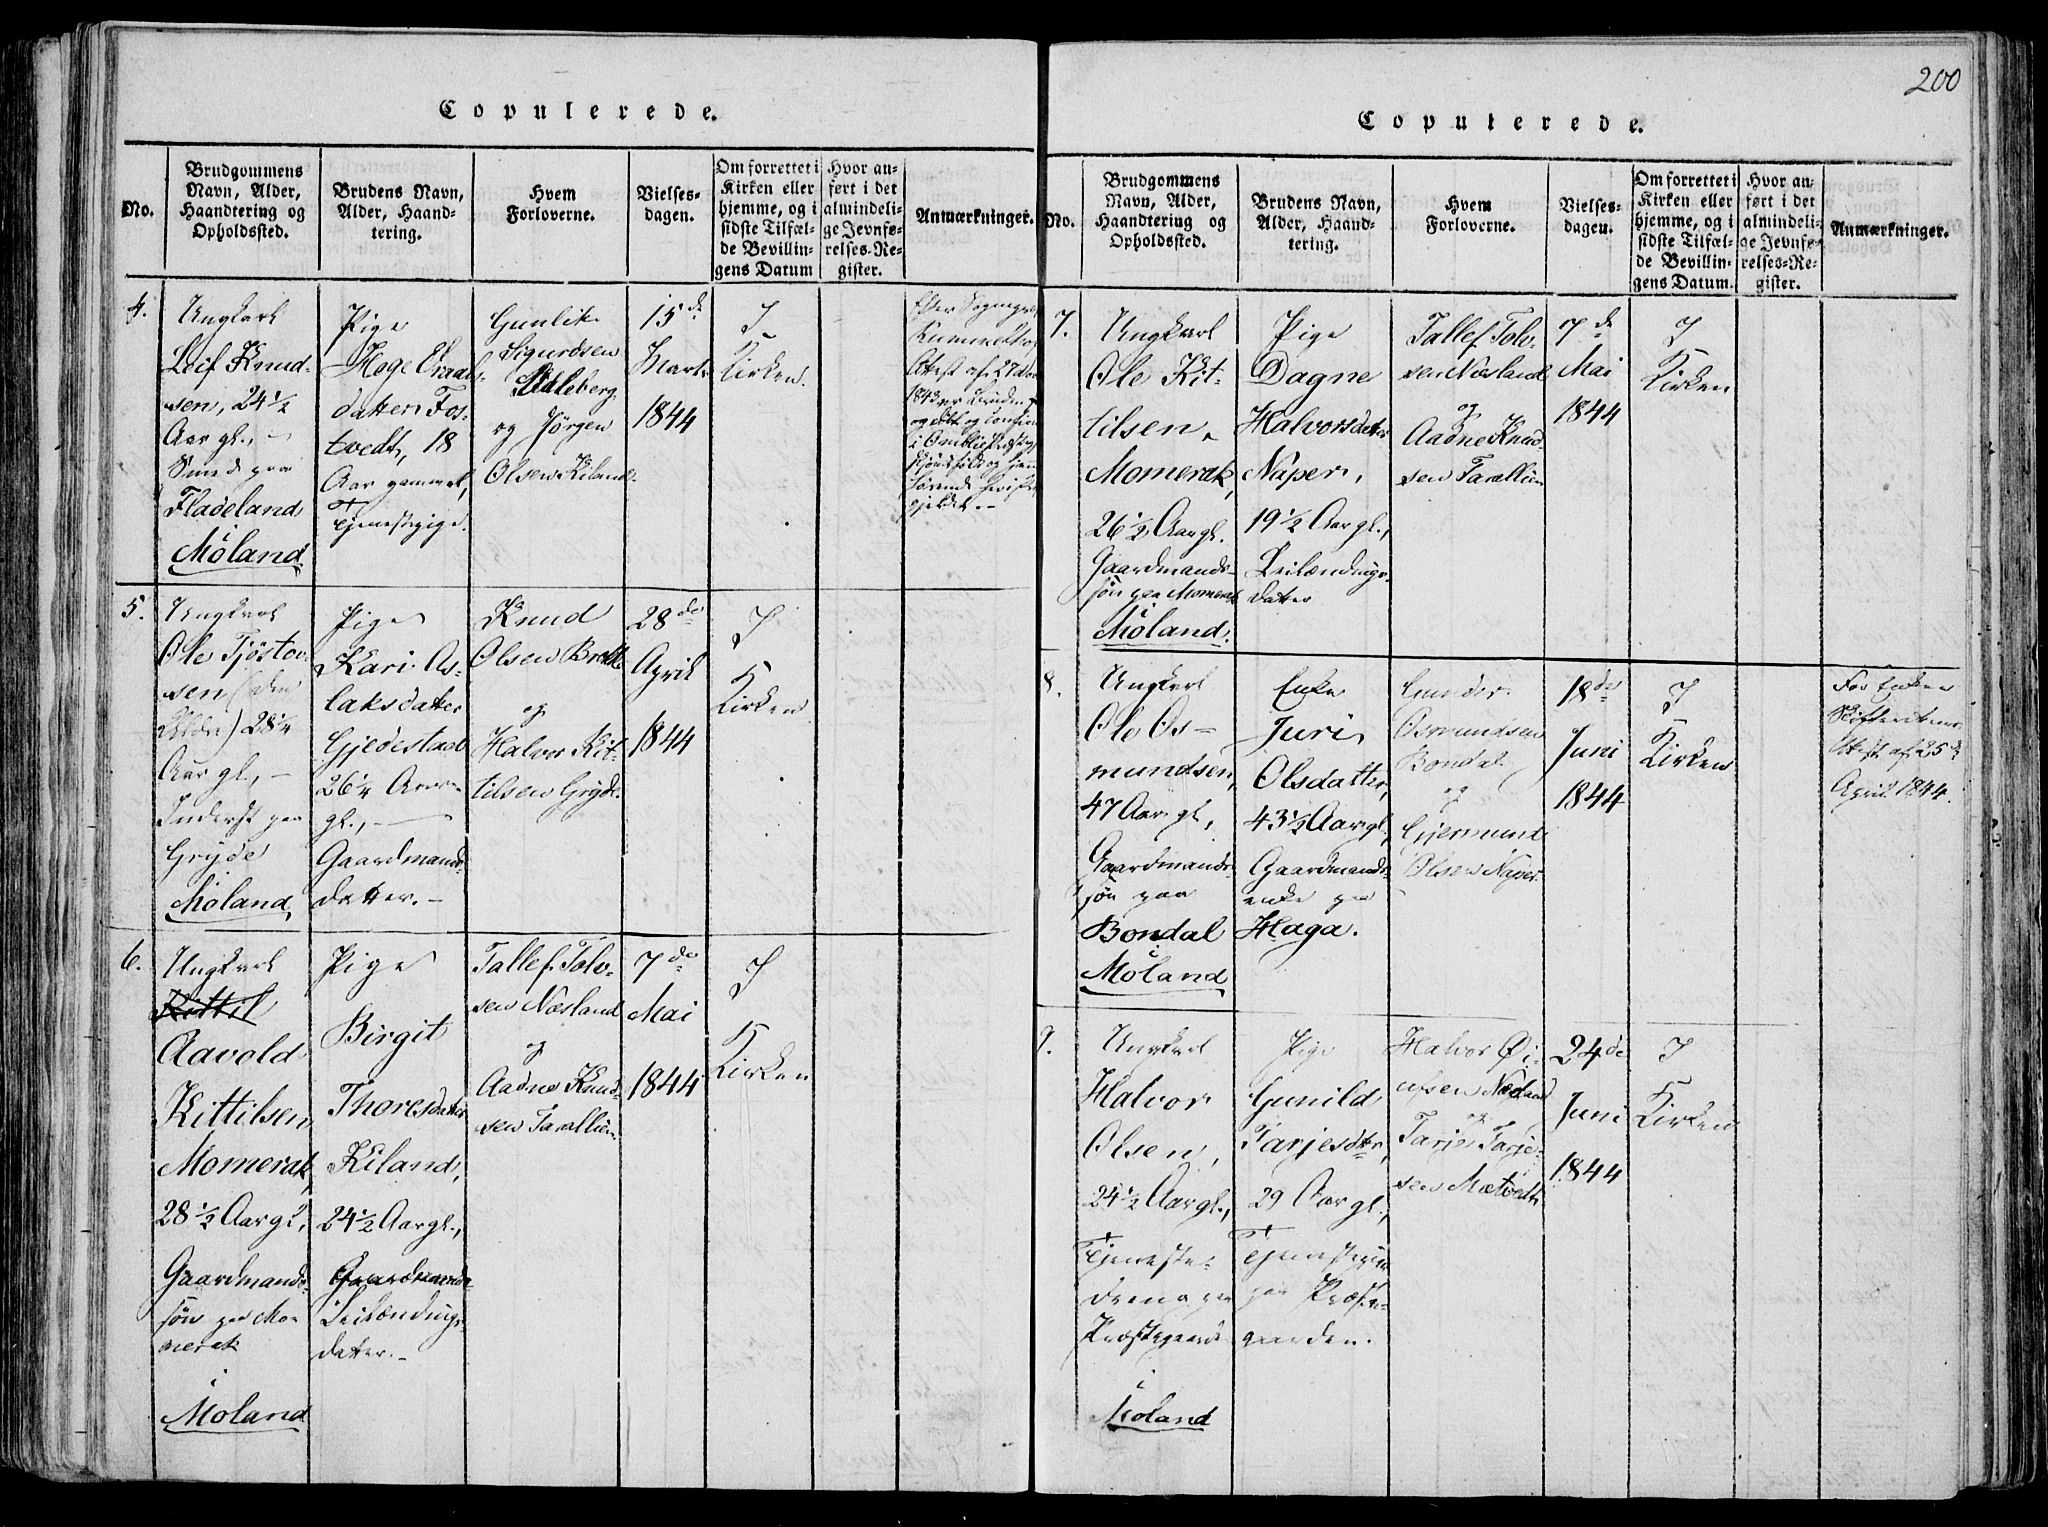 200
Copulerede.
No.
Brudgommens
Navn, Alder,
Haandtering og
Opholdssted.
Brudens Navn,
Alder, Haand-
tering.
Hvem
Forloverne.
Vielses-
dagen.
Om forrettet i
Kirken eller
hjemme, og i
sidste Tilfæl-
de Bevillin-
gens Datum
Hvor an-
ført i det
almindeli-
ge Jevnfø-
relses-Re-
gister.
Anmærkninger.
4.
Ungkarl
Leif Knud-
sen, 24½
Aar gl., -
Smed paa
Fladeland
i
Moland
Pige
Hege
datter Fos-
tvedt, 18
Aar gammel,
Tjenestepige.
Gunlik
Sigurdsen
og Jörgen
Olsen Kiland
15de
Marts
1844
I
Kirken.
1843 er Bruden
5.
Ungkarl
Ole Tjöstov-
sen (den
Ældre) 28¼
Aar gl., -
Inderst paa
Gryde
i
Moland,
Pige
Kari As-
laksdatter
Gjedestad
26¼ Aar
gl., -
Gaardmands-
datter. -
Knud
Olsen Brekke
og
Halvor Kit-
tilsen Gryde
28de
April
1844
I
Kirken
6.
Ungkarl
Kittil
Aavold
Kittilsen
Momerak,
28½ Aar gl.,
Gaardmands-
søn paa Mo-
merak
i
Moland
Pige
Birgit
Thoresdatter
Kiland,
24½ Aar gl.,
Gaardmands-
Leilændings-
datter. -
Tallef Tolv-
sen Næsland
og
Aadne Knud-
sen Tarallien
7de
Mai
1844
I
Kirken
Copulerede.
No.
Brudgommens
Navn, Alder,
Haandtering og
Opholdssted.
Brudens Navn,
Alder, Haand-
tering.
Hvem
Forloverne.
Vielses-
dagen.
Om forrettet i
Kirken eller
hjemme, og i
sidste Tilfæl-
de Bevillin-
gens Datum.
Hvor an-
ført i det
almindeli-
ge Jevnfø-
relses-Re-
gister.
Anmærkninger.
7.
Ungkarl
Ole Kit-
tilsen
Momerak,
26½ Aar gl.
Gaardmands-
søn paa Momerak
i
Moland.
Pige
Dagne
Halvorsdatter
Naper,
19½ Aar gl.,
Leilændings-
datter
Tallef Tolv-
sen Næsland
og
Aadne Knud-
sen Tarallien
7de
Mai
1844
I
Kirken
8.
Ungkarl
Ole Os-
mundsen,
47 Aar gl.,
Gaardmands-
søn paa
Bondal
i
Moland
Enke
Juri
Olsdatter,
43½ Aar gl.,
Gaardmands-
enke paa
Haga.
Gunder
Osmundsen
Bondal
og
Gjermund
Olsen Naper.
18de
Juni
1844
I
Kirken
For Enken
Skifterettens
Attest af 25de
April 1844.
9.
Ungkarl
Halvor
Olsen,
24½ Aar gl.,
Tjeneste-
dreng paa
Præstegaarden
i
Moland
Pige
Gunild
Tarjesdtr,
29 Aar gl.,
Tjenestepige
paa Præste-
gaarden.
Halvor Øi-
ufsen
og
Tarje Tarje-
sen Mætvedt
24de
Juni
1844
I
Kirken